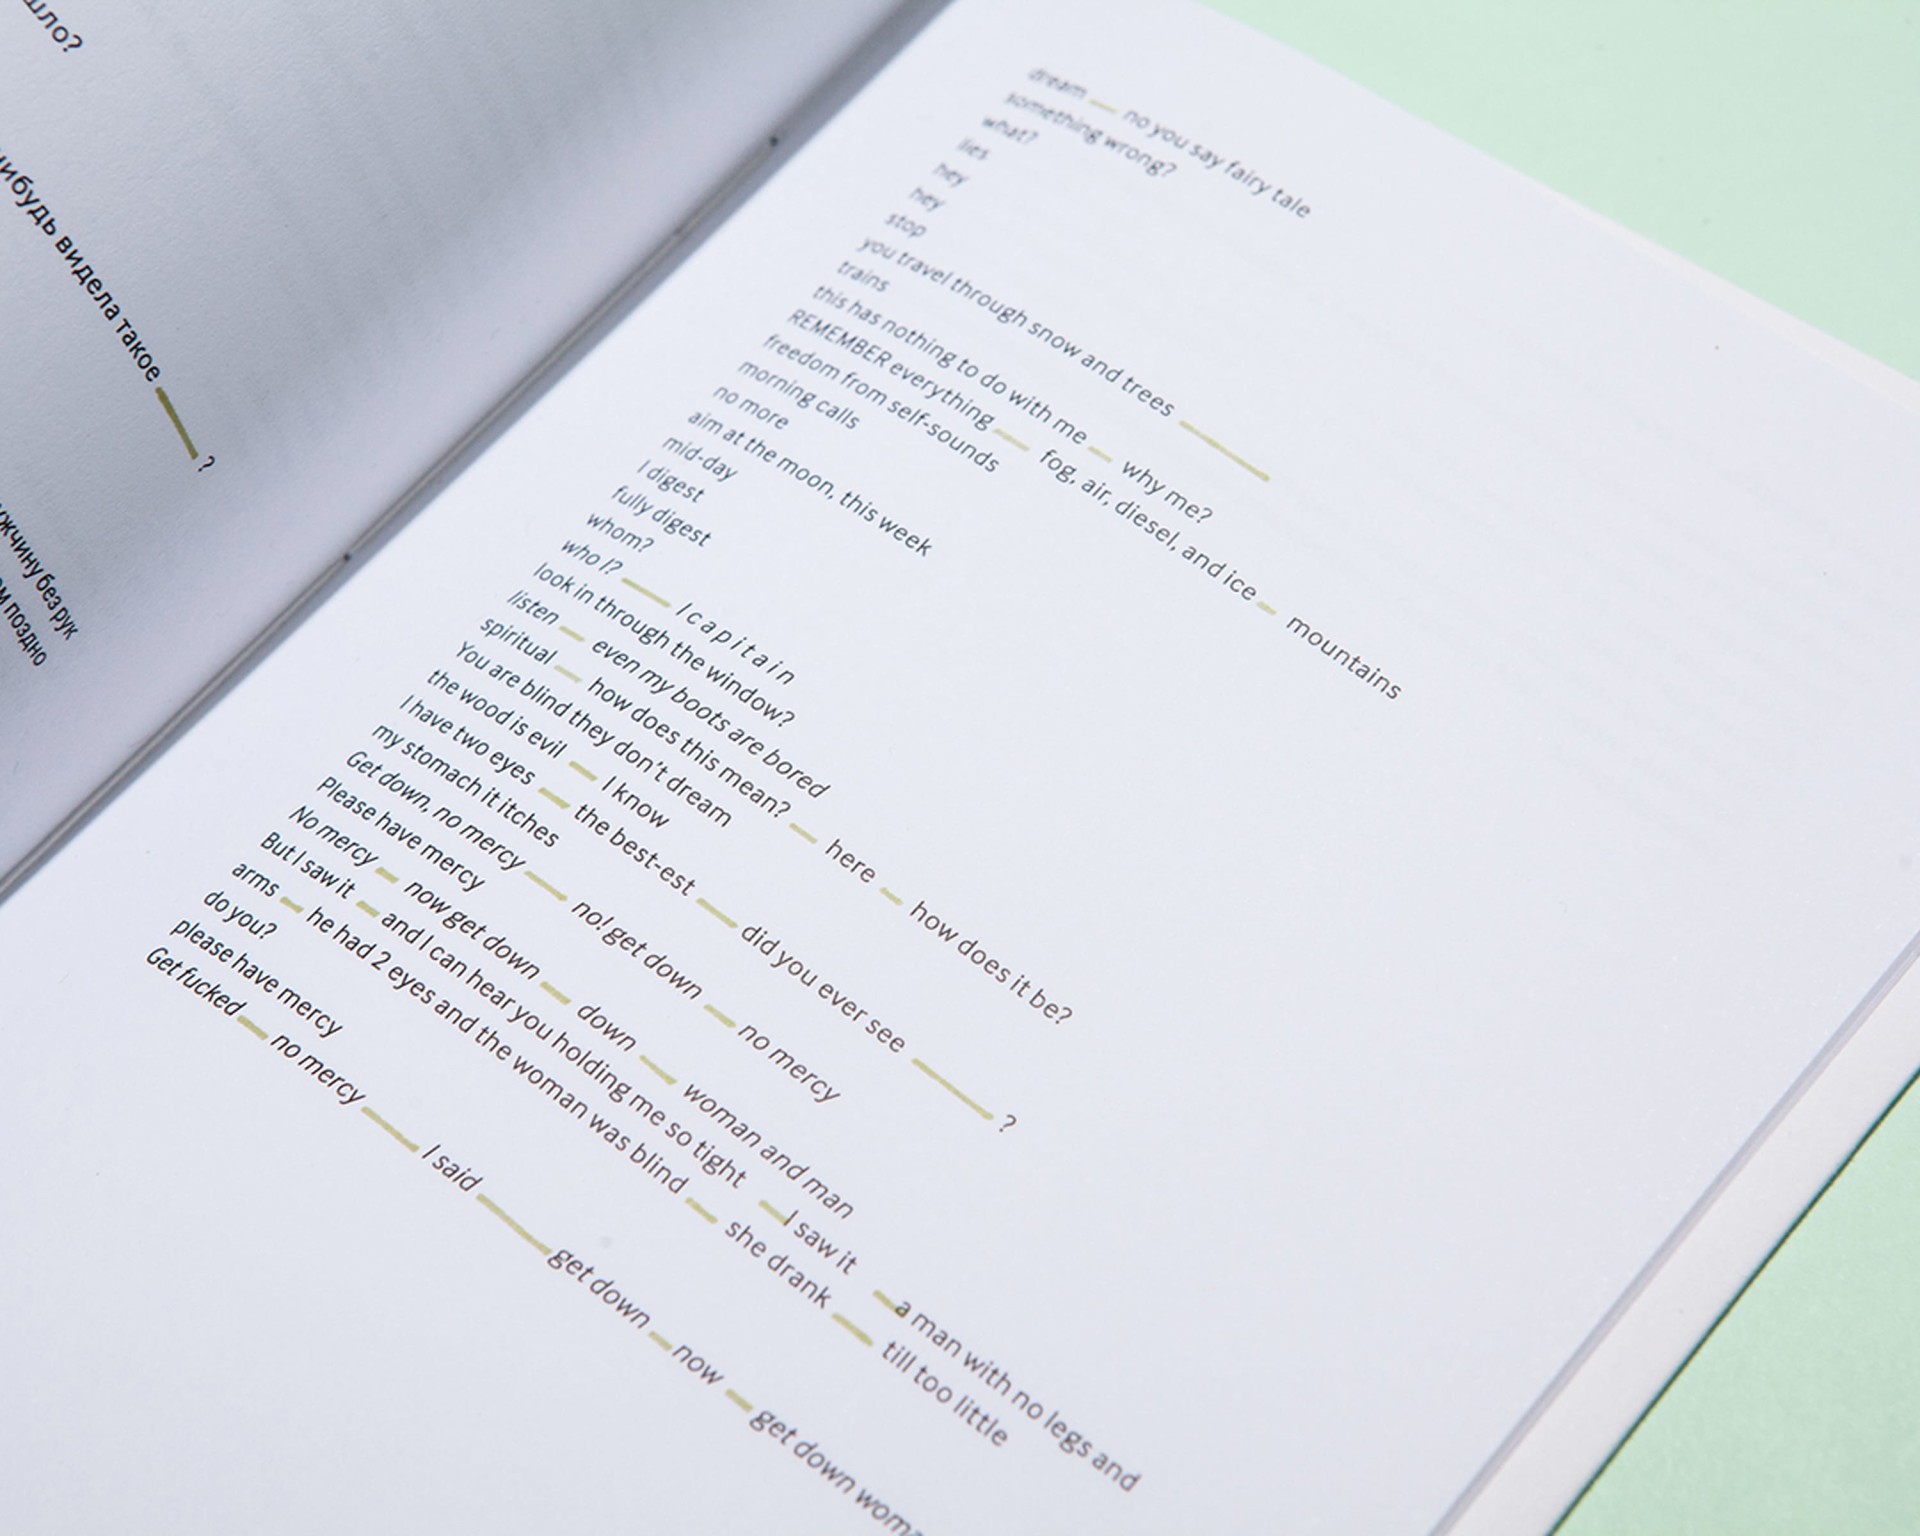 шло?
нибудь видела такое ____ ?
мужчину без рук
поздно
dream __ no you say fairy tale
something wrong?
what?
lies
hey
hey
stop
you travel through snow and trees ____
trains
this has nothing to do with me __ why me?
REMEMBER everything __ fog, air, diesel, and ice __ mountains
freedom from self-sounds
morning calls
no more
aim at the moon, this week
mid-day
I digest
fully digest
whom?
who I? ___ I c a p i t a i n
look in through the window?
listen __ even my boots are bored
spiritual __ how does this mean? __ here __ how does it be?
You are blind they don't dream
the wood is evil __ I know
I have two eyes __ the best-est ___ did you ever see ____ ?
my stomach it itches
Get down, no mercy ___ no! get down __ no mercy
Please have mercy
No mercy __ now get down __ down ___ woman and man
But I saw it __ and I can hear you holding me so tight __ I saw it __ a man with no legs and
arms __ he had 2 eyes and the woman was blind __ she drank ___ till too little
do you?
please have mercy
Get fucked __ no mercy ___ I said ____ get down __ now __ get down woma